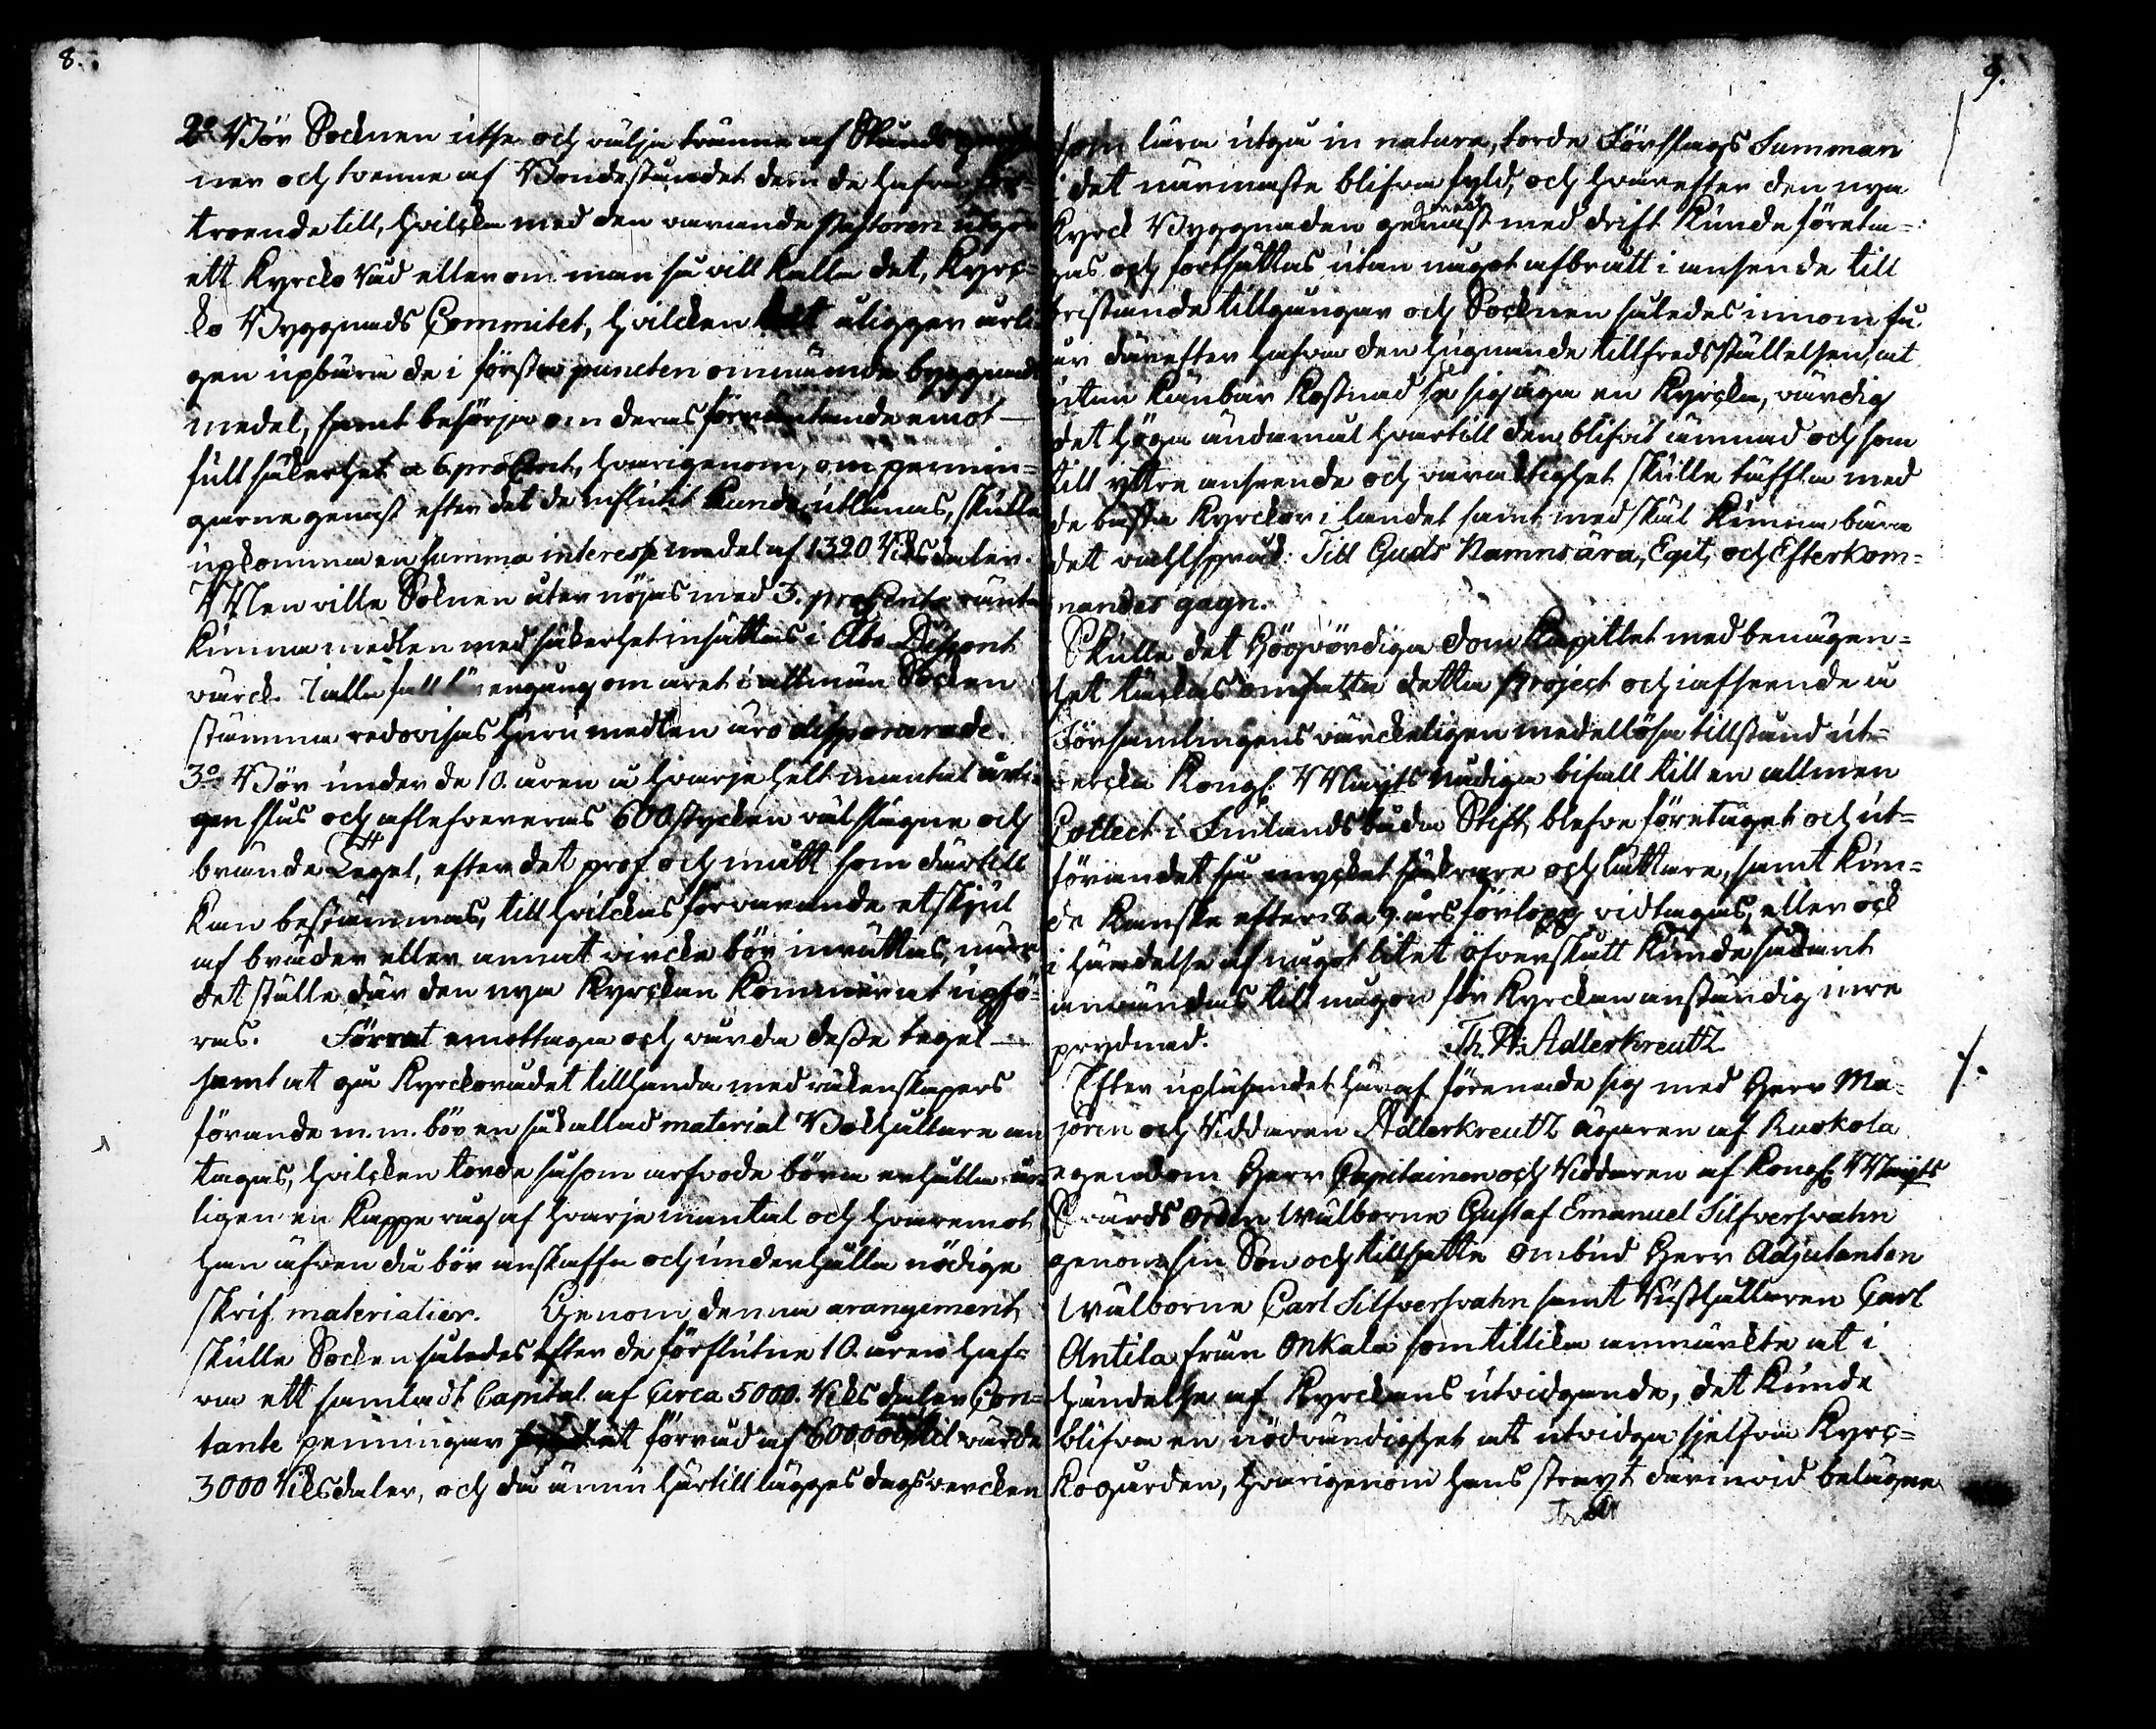 8.
2o Bör Socknen utse och välja trenne af Stånds
ner och trenne af Bondeståndet dem de hafva för-
troende till, hvilcka med den varande pastoren utgör
ett Kyrcko Råd eller om man så vill kalla det, Kyrc-
ko Byggnads Commitet, hvilcken åligger årli
gen upbära de i första puncten omnämnde byggnads
medel, samt besörja om deras förräntande emot
full säkerhet a 6 proCent, hvarigenom, om pennin-
garne genast efter det de influtit kunde utlånas, skulle
upkomma en summa interesse medel af 1320 Riksdaler.
Men ville Soknen åter nöjas med 3. proCents ränta
kunna medlen med säkerhet insättas i Åbo Discont
värck. I alla fall bör en gång om året i allmän Socken
stämma redovisas huru medlen äro disponerade.
3o Bör under de 10. åren å hvarje helt mantal årli-
gen slås och aflefvereras 600 stycken väl slagne och
brände Tegel, efter det prof och mått som därtill
kan bestämmas, till hvilckas förvarande et skjul
af bräder eller annat vircke bör inrättas, nära
det ställe där den nya Kyrckan kommer at upfö-
ras. För at emottaga och vårda desse tegel
samt at gå Kyrckorådet tillhanda med räkenskapers
förande m.m. bör en så kallad material Bokhållare an
tagas, hvilcken torde såsom arfvode böra erhålla år-
ligen en Kappe råg af hvarje mantal och hvaremot
han äfven då bör anskaffa och underhålla nödige
skrif materialier. Genom denna arangement
skulle Socken således efter de förflutne 10. åren haf-
va ett samladt Capital af Circa 5000. Riksdaler Con-
tante penningar et förråd af 60000 Tel värde
3000 Riksdaler, och då ännu härtill lägges dagsvercken
9.
som lära utgå in natura, torde Förslags Summan
i det närmaste blifva fyld, och hvarefter den nya
Kyrck Byggnaden genast med drift kunde företa-
gas och fortsättas utan något afbrått i anseende till
bristande tillgångar och Socknen således innom få
år därefter hafva den hugnande tillfredsställelsen, at
utan känbar kostnad se sig äga en Kyrcka, värdig
det höga ändamål hvartill den blifvit ämnad och som
till yttre anseende och varaktighet skulle täffla med
de bästa Kyrckor i landet samt med skäl kunna bära
det valspråk: Till Guds Namns ära, Egit, och Efterkom-
mandes gagn.
Skulle det Högvördiga Dom Kapitlet med benägen-
het täckas omfatta detta project och i afseende å
Församlingens värckeligen medellösa tillstånd ut-
vercka Kongl. Maijts Nådiga bifall till en allmen
Collect i Finlands båda Stift, blefve företaget och ut-
förandet så mycket säkrare och lättare, samt kun-
de kanske efter 8 a 9. års förlopp vidtagas, eller ock
i händelse af något litet öfverskått kunde sådant
användas till någon för Kyrckan anständig inre
prydnad. Th. H: Adlerkreutz
Efter upläsandet häraf förenade sig med Herr Ma-
joren och Riddaren Adlerkreutz Ägaren af Kuskola
egendom Herr Capitainen och Riddaren af Kongl. Maijts
Svärds Orden Wälborne Gustaf Emanuel Silfversvahn
genom sin Son och tillsatte ombud Herr Adjutanten
Wälborne Carl Silfversvahn samt Rusthållaren Carl
Antila från Onkala som tillika anmärkte at i
händelse af Kyrckans utvidgande, det kunde
blifva en nödvändighet att utvidga sjelfva Kyrc-
kogården, hvarigenom hans strayt därinvid belägne